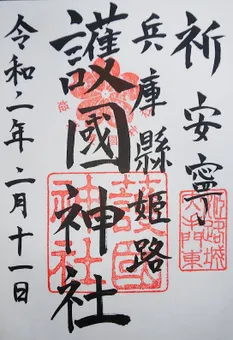 祈安寧
兵庫縣姫路
護國神社
令和二年二月十一日
護國
神社
姫路城
大門東